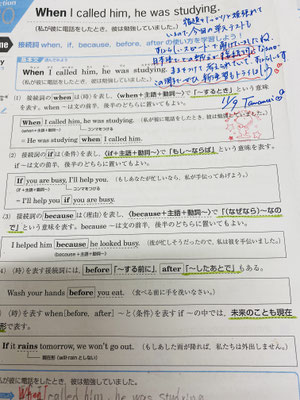 When I called him, he was studying.
(私が彼に電話をしたとき、彼は勉強していました。)
接続詞 when, if, because, before, after の使い方を学習しよう
When I called him, he was studying.
(私が彼に電話をしたとき、彼は勉強していました。)
11/9
(1) 接続詞の when は〈時〉を表し、〈when+主語+動詞~〉で「~するとき」という意味
を表す。when ~は文の前半、後半のどちらに置いてもよい。
When I called him, he was studying.
(when+主語+動詞~) コンマをつける
= He was studying when I called him.
(2) 接続詞の if は〈条件〉を表し、〈if+主語+動詞~〉で「もし~ならば」という意味を表す。
if ~は文の前半、後半のどちらに置いてもよい。
If you are busy, I'll help you. (もしあなたが忙しいなら、私が手伝ってあげよう。)
(if+主語+動詞~) コンマをつける
= I'll help you if you are busy.
(3) 接続詞の because は〈理由〉を表し、〈because+主語+動詞~〉で「(なぜなら)~なの
で」という意味を表す。because ~は文の前半、後半のどちらに置いてもよい。
I helped him because he looked busy. (彼が忙しそうだったので、私は彼を手伝いました。)
(because+主語+動詞~)
(4) 〈時〉を表す接続詞には、before「~する前に」、after「~したあとで」もある。
Wash your hands before you eat. (食べる前に手を洗いなさい。)
〈時〉を表す when[before, after] ~と〈条件〉を表す if ~の中では、未来のことも現在
形で表す。
If it rains tomorrow, we won't go out. (もしあした雨が降れば、私たちは外出しません。)
現在形 (will rain としない)
私が彼に電話をしたとき、彼は勉強していました。
When I called him, he was studying.